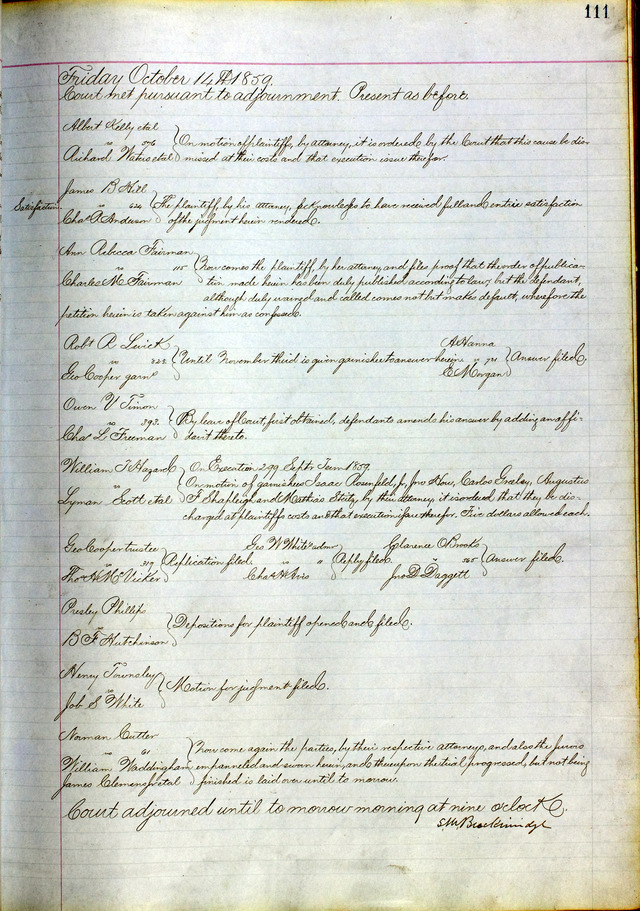 111
Friday October 14th 1859.
Court met pursuant to adjournment. Present as before.
Albert Kelly etal
vs 376
Richard Waters etal
On motion of plaintiffs, by attorney, it is ordered by the Court that this cause be dis-
missed at their costs and that execution issue therefor.
Satisfaction
James B Hill
vs 624
Chas P Anderson
The plaintiff, by his attorney, acknowledges to have received full and entire satisfaction
of the judgment herein rendered.
Ann Rebecca Fairman
vs 115
Charles M Fairman
Now comes the plaintiff, by her attorney, and files proof that the order of publica-
tion made herein has been duly published according to law; but the defendant,
although duly warned and called comes not but makes default, wherefore the
petition herein is taken against him as confessed.
Robt A
vs 323
Geo Cooper garns
Until November third is given garnishee to answer herein
A Hanna
vs 721
E Morgan
Answer filed.
Owen V Timon
vs 393
Chas L Freeman
By leave of Court, first obtained, defendants amends his answer by adding an affi-
davit thereto.
William T Hazard
vs
Lyman Scott etal
On Execution 299 Sept. Term 1859.
On motion of garnishees Isaac Rosenfeld, jr, Jno How, Carlos Greeley, Augustus
F Shapleigh and Mathias by their attorney, it is ordered that they be dis-
charged at plaintiffs costs and that execution issue therefor. Five dollars allowed each.
Geo Cooper trustee
vs 319
Thos H McVicker
Replication filed.
Geo W White admr
vs "
Chas W Ivis
Reply filed.
Clarence O Brooks
vs 565
Jno D Daggett
Answer filed.
Presley Phillips
vs
B F Hutchinson
Depositions for plaintiff opened and filed.
Henry Townsley
vs
Job S White
Motion for judgment filed.
Norman Cutter
vs 61
William Waddingham
James Clemens jr etal
Now come again the parties, by their respective attorneys, and also the jurors
empanneled and sworn herein, and thereupon the trial progressed, but not being
finished is laid over until to morrow.
Court adjourned until to morrow morning at nine oclock.
S M Breckinridge